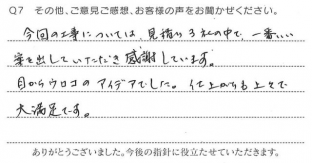 Q7 その他、ご意見ご感想、お客様の声をお聞かせください。
今回の工事については、見積り3社の中で、一番いい
案を出していただき感謝しています。
目からウロコのアイデアでした。仕上がりも上々で
大満足です。
ありがとうございました。今後の指針に役立たせていただきます。